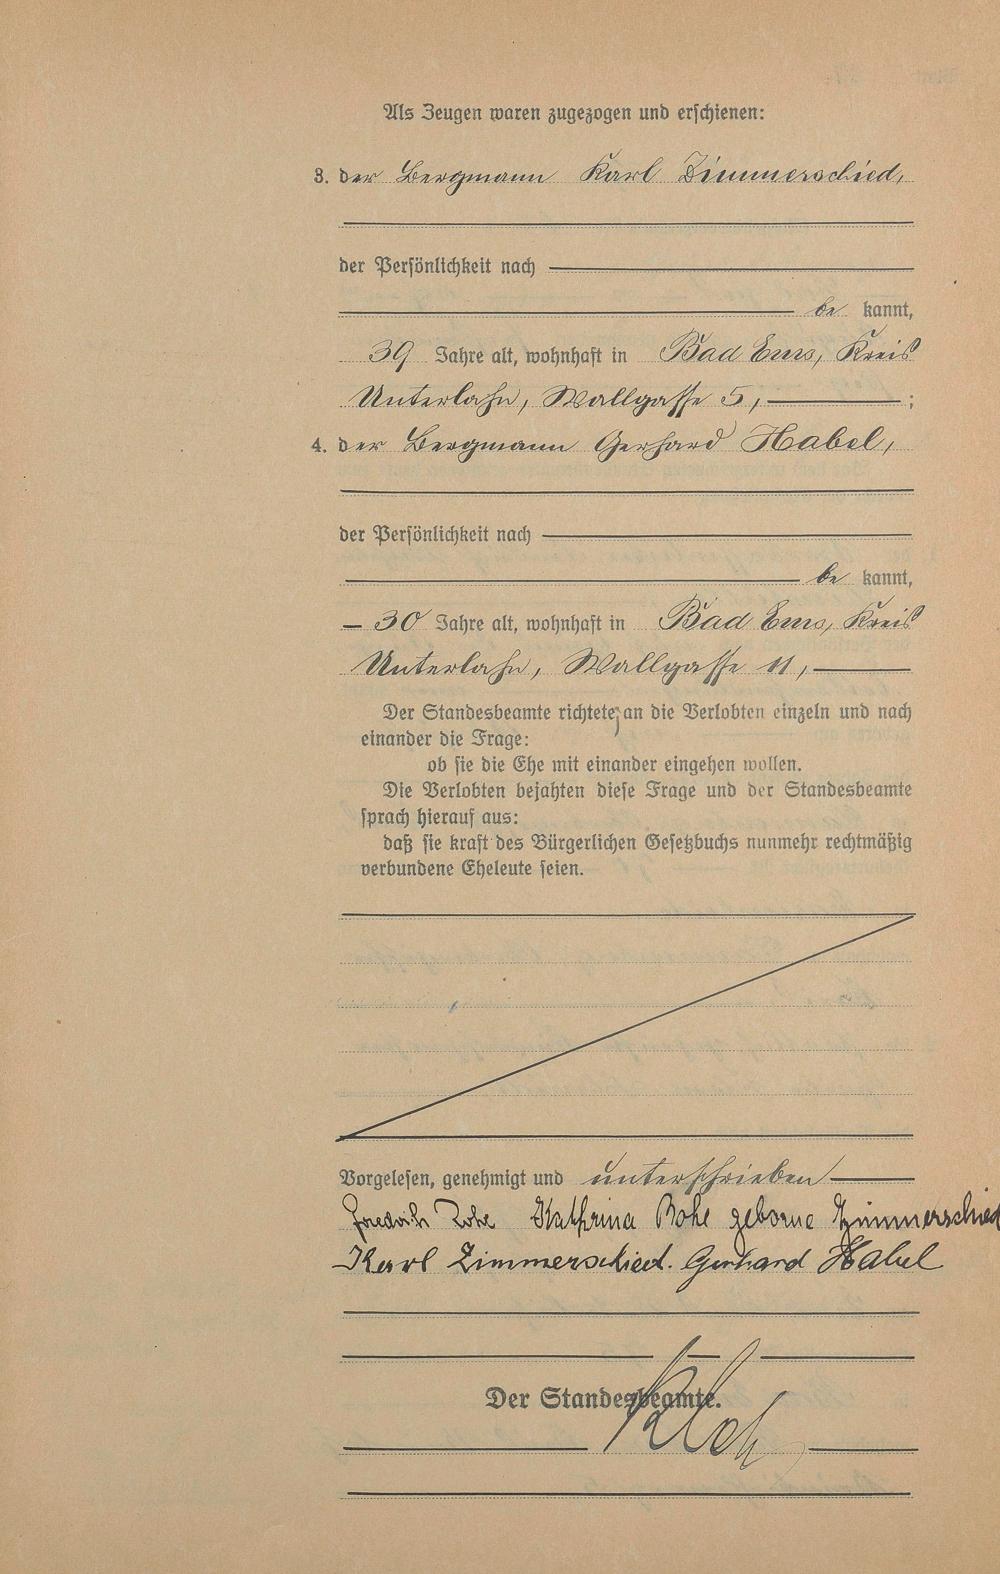 Als Zeugen waren zugezogen und erschienen:
3. der Bergmann Karl Zimmerschied,
der Persönlichkeit nach
be kannt,
39 Jahre alt, wohnhaft in Bad Ems, Kreis
Unterlahn, Wallgasse 5, ;
4. der Bergmann Gerhard Habel,
der Persönlichkeit nach
be kannt,
30 Jahre alt, wohnhaft in Bad Ems, Kreis
Unterlahn, Wallgasse 11,
Der Standesbeamte richtete an die Verlobten einzeln und nach
einander die Frage:
ob sie die Ehe mit einander eingehen wollen.
Die Verlobten bejahten diese Frage und der Standesbeamte
sprach hierauf aus:
daß sie kraft des Bürgerlichen Gesetzbuchs nunmehr rechtmäßig
verbundene Eheleute seien.
Vorgelesen, genehmigt und unterschrieben
Friedrich Kathrina geborne Zimmerschied
Karl Zimmerschied. Gerhard Habel
Der Standesbeamte.